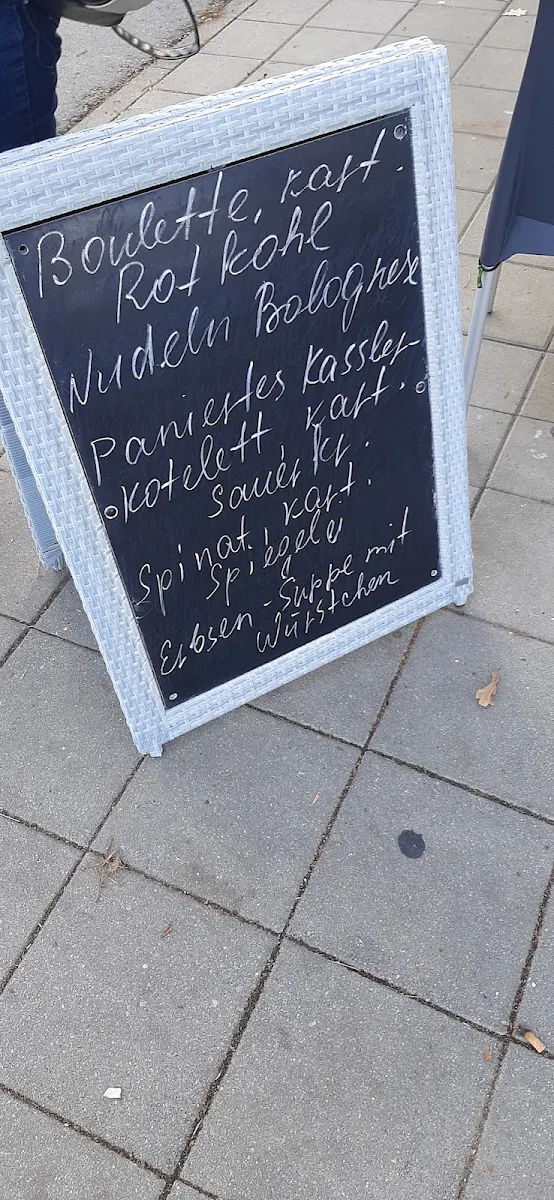 Boulette, kart.
Rotkohl
Nudeln Bolognese
Paniertes Kassler
kotelett, kart.
Sauerkr.
Spinat, kart.
Spiegelei
Erbsen-Suppe mit
Würstchen